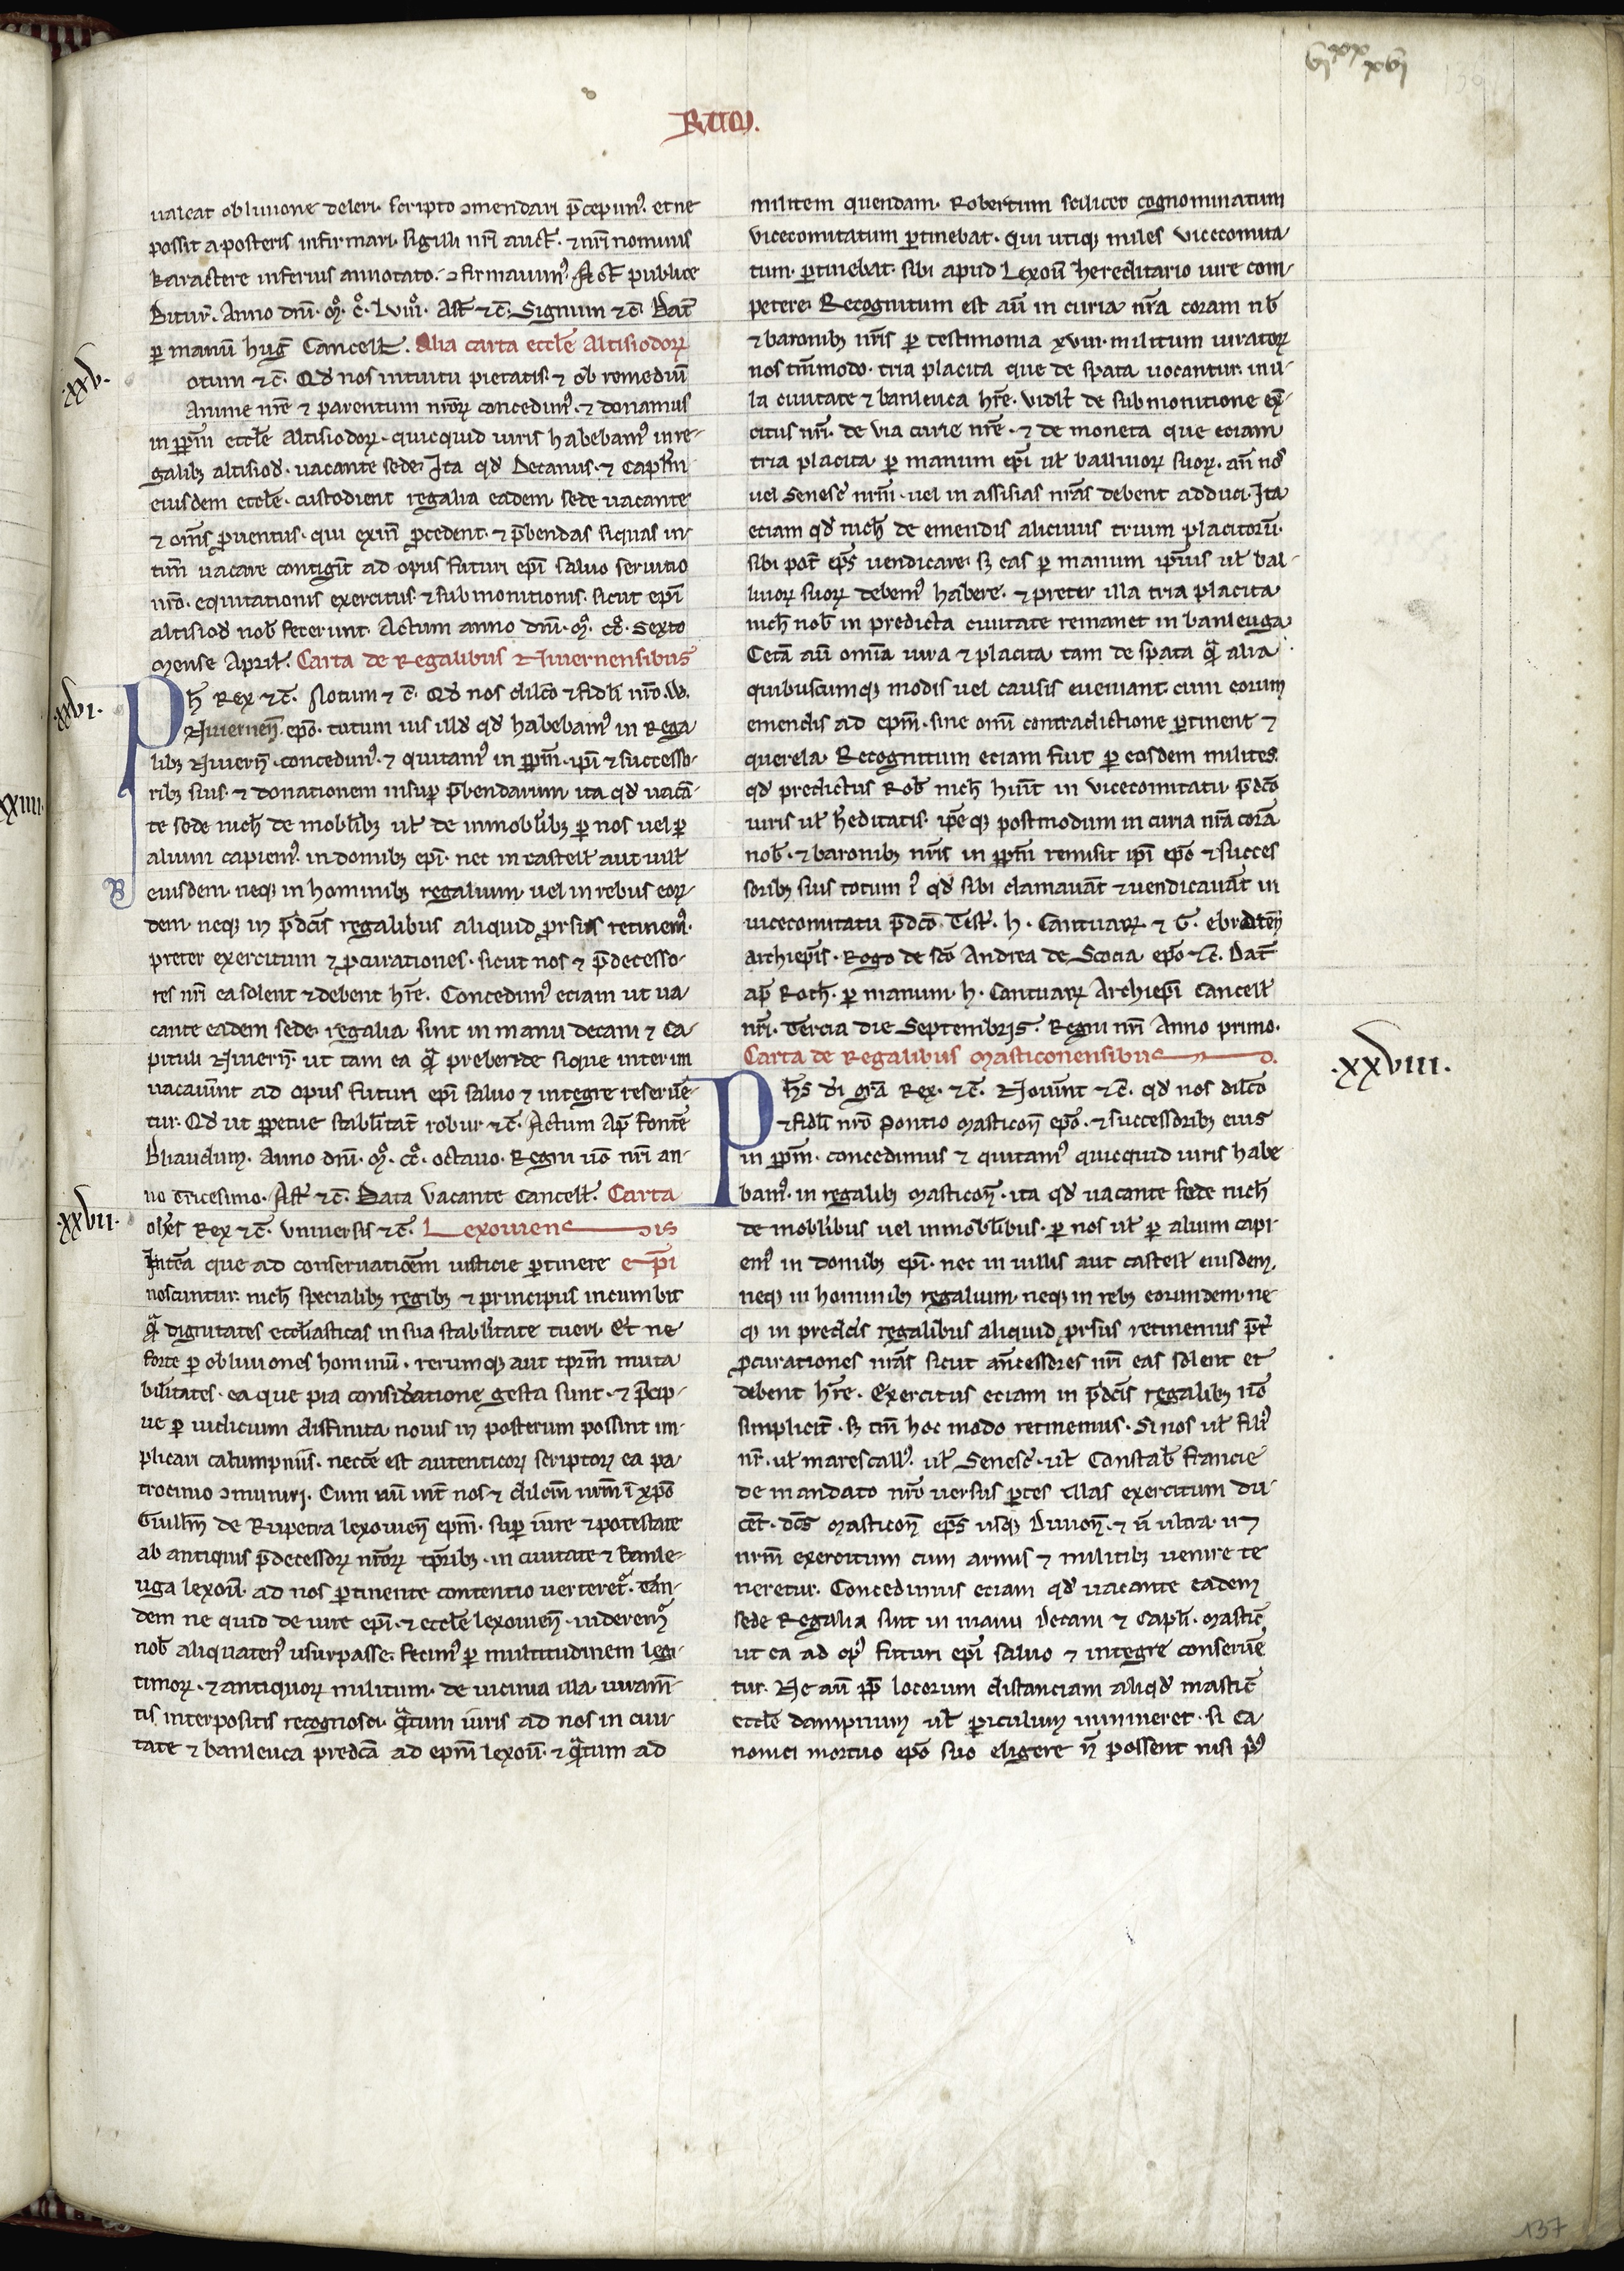 vi xx xvi
139
RUUM.
ualeat obliuione deleri. scripto ɔmendari p̄cepimꝰ. et ne
possit a posteris infirmari. sigilli nr̄i auct̄. ⁊ nr̄i nominis
karactere inferius annotato. ɔfirmauimꝰ. Act̄ publice
Bitur̄. Anno dn̄i. mͦ. cͦ. lviiiͦ. Ast̄ ⁊ c̄. Signum ⁊ c̄. Dat̄
ꝑ manū huḡ Cancell̄. Alia carta eccl̄e Altisiodorꝝ
.xxv.
otum ⁊ c̄. Qd̄ nos intuitu pietatis. ⁊ ob remediū
Anime nr̄e ⁊ parentum nr̄orꝝ concedimꝰ. ⁊ donamus
in ꝑpm̄ eccl̄e altisiodorꝝ. quicquid iuris habebamꝰ in re-
galibꝫ altisiod̄. uacante sede. Ita qd̄ Decanus. ⁊ Capl̄m
eiusdem eccl̄e. custodient regalia eadem sede uacante
⁊ om̄s ꝓuentus. qui exin̄ ꝓcedent. ⁊ p̄bendas siquas in-
tim̄ uacare contigit̄ ad opus futuri ep̄i saluo seruitio
nr̄o. equitationis exercitus. ⁊ submonitionis. sicut ep̄i
altisiod̄ nob̄ fecerunt. Actum anno dn̄i. mͦ. ccͦ. Sexto
mense April̄. Carta de Regalibus Niuernensibus
.xxvi.
Ph̄ Rex ⁊ c̄. Notum ⁊ c̄. Qd̄ nos dilc̄o ⁊ fidl̄i nr̄o .W.
Niuernen̄. ep̄o. totum ius illd̄ qd̄ habebamꝰ in Rega
libꝫ Niuern̄. concedimꝰ. ⁊ quitamꝰ in ꝑpm̄. ip̄i ⁊ successo-
xxiiii.
ribꝫ suis. ⁊ donationem insuꝑ p̄bendarum. ita qd̄ uacā-
te sede nich̄ de mobl̄ibꝫ ul̄ de inmobl̄ibꝫ ꝑ nos uel ꝑ
alium capiemꝰ. in domibꝫ ep̄i. nec in castell̄ aut uill̄
eiusdem. neqꝫ in hominibꝫ regalium. uel in rebus eorꝝ
dem. neqꝫ in p̄dc̄is regalibus aliquid ꝓrsus retinemꝰ.
preter exercitum ⁊ ꝓcurationes. sicut nos ⁊ p̄decesso-
res nr̄i ea solent ⁊ debent hr̄e. Concedimꝰ eciam ut ua
cante eadem sede. regalia sint in manu decani ⁊ ca-
pituli Niuern̄. ut tam ea q̄ꝫ prebende sique interim
uacauint̄ ad opus futuri ep̄i saluo ⁊ integre reseruē-
tur. Qd̄ ut ꝑpetue stabl̄itat̄ robur ⁊ c̄. Actum Ap̄ Fontē
Bliaudum. Anno dn̄i. mͦ. ccͦ. octauo. Regni uo̅ nr̄i an-
no Tricesimo. Ast̄ ⁊ c̄. Data vacante Cancell̄. Carta
.xxvii.
ohēs Rex ⁊ c̄. Vniuersis ⁊ c̄. Lexouiensis
Intēa que ad conseruatiōem iusticie ꝑtinere ep̄i
noscuntur. nich̄ specialibꝫ regibꝫ ⁊ principius incumbit
q̄ dignitates eccl̄iasticas in sua stabl̄itate tueri. Et ne
forte ꝑ obliuiones hominū. rerumqꝫ aut tp̄rm̄ muta
bilitates. ea que pia considatione gesta sunt. ⁊ p̄cip-
ue ꝑ iudicium diffinita nouis in posterum possint im-
plicari calumpniis̄. necc̄e est autenticorꝝ scriptorꝝ ea pa-
trocinio ɔmuniri. Cum aū int̄ nos ⁊ dilc̄m nr̄m ī xp̄o
Guill̄m de Rupetra lexouien̄ ep̄m. suꝑ iure ⁊ potestate
ab antiquis p̄decessorꝝ nr̄orꝝ tp̄ribꝫ. in ciuitate ⁊ banle-
uga lexou̅. ad nos ꝑtinente contentio uerteret̄. tan-
dem ne quid de iure ep̄i. ⁊ eccl̄e lexouien̄. uideremꝰ
nob̄ aliquatenꝰ usurpasse. fecimꝰ ꝑ multitudinem legi-
timorꝝ. ⁊ antiquorꝝ militum. de uicinia illa. iuram̄-
tis interpositis recognosci. q̄tum iuris ad nos in ciui-
tate ⁊ banleuca predc̄a ad ep̄m lexou̅. ⁊ q̄tum ad
militem quendam. Robertum scilicet cognominatum
vicecomitatum ꝑtinebat. qui utiqꝫ miles vicecomita
tum. ꝑtinebat. sibi apud Lexou̅ hereditario iure com-
petere. Recognitum est aū in curia nr̄a coram nb̄
⁊ baronibꝫ nr̄is ꝑ testimonia xviii. militum iuratorꝝ
nos tm̄modo. tria placita que de spata uocantur. in il-
la ciuitate ⁊ banleuca hr̄e. vidl̄t de submonitione ex̄-
citus nr̄i. de via curie nr̄e. ⁊ de moneta que eciam
tria placita ꝑ manum ep̄i ul̄ balliuorꝝ suorꝝ. an̄ nos
uel Senesc̄ nr̄m. uel in assisias nr̄as debent adduci. Ita
eciam qd̄ nich̄ de emendis alicuius trium placitorū.
sibi pot̄ ep̄s uendicare. sꝫ eas ꝑ manum ip̄ius ul̄ bal-
liuorꝝ suorꝝ debemꝰ habere. ⁊ preter illa tria placita
nich̄ nob̄ in predicta ciuitate remanet in banleuga.
Cetā aū om̄ia iura ⁊ placita tam de spata q̄ꝫ alia
quibuscumqꝫ modis uel causis eueniant. cum eorum
emendis ad ep̄m. sine omi contradictione ꝑtinent ⁊
querela. Recognitum eciam fuit ꝑ eosdem milites.
qd̄ predictus Rob̄ nich̄ hūit in vicecomitatu p̄dc̄o
iuris ul̄ h̄editatis. ip̄e qꝫ postmodum in curia nr̄a corā
nob̄. ⁊ baronibꝫ nr̄is in ꝑpm̄ remisit ip̄i ep̄o ⁊ succes
soribꝫ suis totum ī qd̄ sibi clamauāt ⁊ uendicauāt in
uicecomitatu p̄dc̄o. Test̄. h. Cantuarꝝ ⁊ G. ebroicen̄
archiep̄is. Rogo de sc̄o Andrea de Scocia ep̄o ⁊ c̄. Dat̄
ap̄ Roch̄. ꝑ manum. h. Cantuarꝝ Archiep̄i Cancell̄
nr̄i. Tercia die Septembris. Regni nr̄i Anno primo.
Carta de Regalibus Masticonensibus
.xxviii.
Ph̄s di gr̄a Rex. ⁊ c̄. Nouint̄ ⁊ c̄. qd̄ nos dilc̄o
⁊ fidl̄i nr̄o Pontio Masticon̄ ep̄o. ⁊ successoribꝫ eius
in ꝑpm̄. concedimus ⁊ quitamꝰ quicquid iuris habe
bamꝰ. in regalibꝫ Masticon̄. ita qd̄ uacante sede nich̄
de mobl̄ibus uel inmobl̄ibus. ꝑ nos ul̄ ꝑ alium capi-
emꝰ in domibꝫ ep̄i. nec in uillis aut castell̄ eiusdem.
neqꝫ in hominibꝫ regalium. neqꝫ in rebꝫ eorundem. ne
qꝫ in predc̄is regalibus aliquid ꝓrsus retinemus p̄t̄
ꝓcurationes nr̄as sicut an̄cessores nr̄i eas solent et
debent hr̄e. Exercitus eciam in p̄dc̄is regalibꝫ no̅
simplicit̄. sꝫ tm̄ hoc modo retinemus. Si nos ul̄ filiꝰ
nr̄. ul̄ marescallꝰ. ul̄ Senesc̄. ul̄ Constab̄ Francie
de mandato nr̄o uersus ꝑtes illas exercitum du-
cet̄. dc̄s Masticon̄ ep̄s usqꝫ Diuion̄. ⁊ n̄ ultra. in
nr̄m exercitum cum armis ⁊ militibꝫ uenire te
neretur. Concedimus eciam qd̄ uacante eadem
sede Regalia sint in manu Decani ⁊ Capl̄i. Mastic̄
ut ea ad opꝰ futuri ep̄i saluo ⁊ integre conseruē
tur. Ne aū ꝓp̄ locorum distanciam aliqd̄ mastic̄
eccl̄e dampnum ul̄ ꝑiculum immineret. si ca
nonici mortuo ep̄o suo eligere n̄ possent nisi pꝰ
137